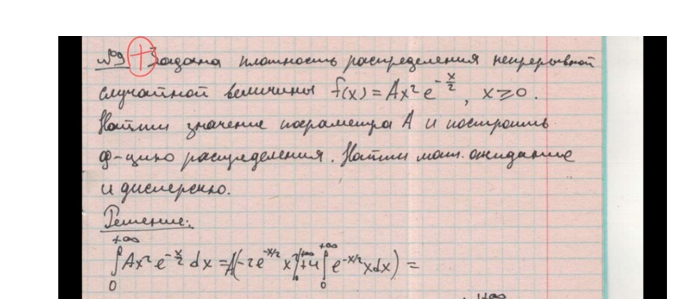 №9 + Задана плотность распределения непрерывной
случайной величины f(x) = Ax² e^{-x/2}, x ≥ 0.
Найти значение параметра A и построить
ф-цию распределения. Найти мат. ожидание
и дисперсию.
Решение:
∫₀^{+∞} Ax² e^{-x/2} dx = A(-2e^{-x/2} x² |₀^{+∞} + 4 ∫₀^{+∞} e^{-x/2} x dx) =
+∞